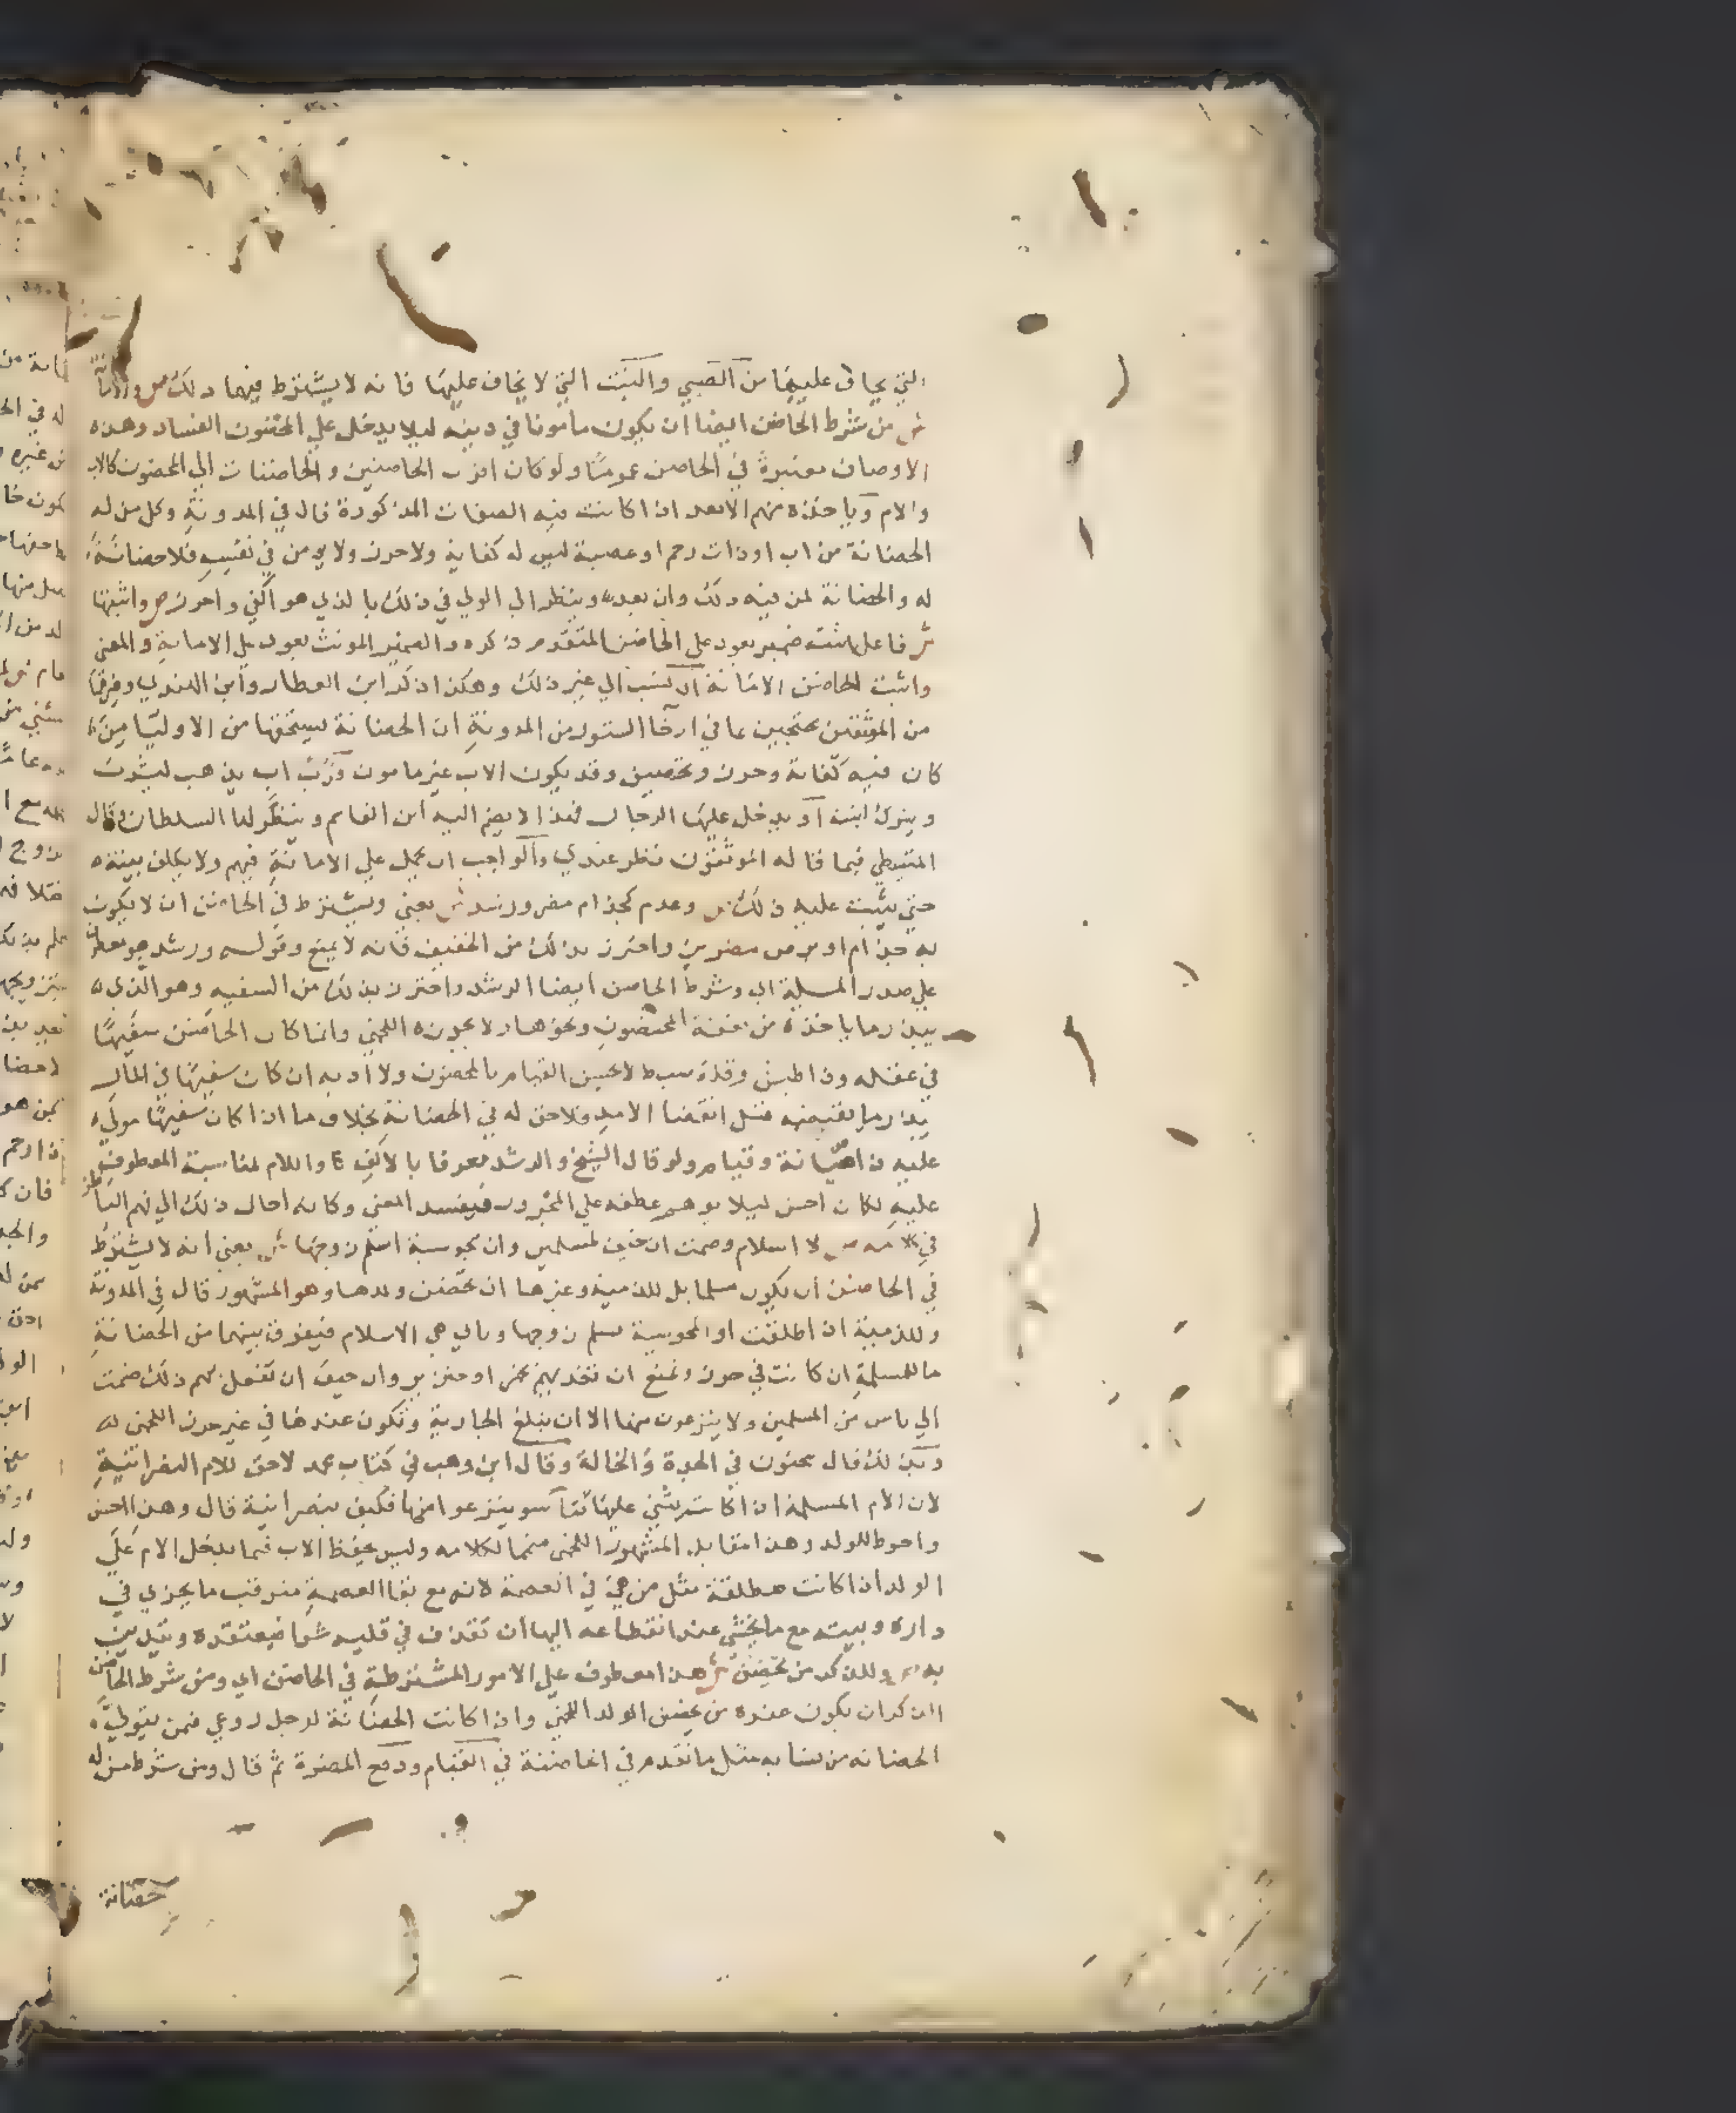 التي يخاف عليها من الصبي والبنت التي لا يخاف عليها فانه لا يشترط فيهما ذلك ص وامانة
ش من شرط الحاضن ايضا ان يكون مامونا في دينه ليلا يدخل علي المحضون الفساد وهذه
الاوصاف معتبرة في الحاضن عموما ولو كان اقرب الحاضنين والحاضنات الي المحضون كالاب
والام وياخذه منهم الابعد اذا كانت فيه الصفات المذكورة قال في المدونة وكل من له
الحضانة من اب او ذات رحم او عصبة ليس له كفاية ولا حرز ولا يومن في نفسه فلا حضانة
له والحضانة لمن فيه ذلك وان بعد وينظر الي الولي في ذلك بالذي هو اكفي واحرز ص واثبتها
ش فاعل اثبت ضمير يعود علي الحاضن المتقدم ذكره والضمير المونث يعود علي الامانة والمعني
واثبت الحاضن الامانة ان نسب الي غير ذلك وهكذا ذكر ابن العطار وابن الهندي وغيرهما
من الموثقين محتجين بما في ارخا الستور من المدونة ان الحضانة يستحقها من الاوليا من
كان فيه كفاية وحرز وتحصين وقد يكون الاب غير مامون ورب اب يذهب ليشرب
ويترك ابنته او يدخل عليها الرجال فهذا لا يضم اليه ابن القاسم وينظر لها السلطان وقال
المتيطي فيما قاله الموثقون نظر عندي والواجب ان يحمل علي الامانة فيهم ولا يكلف بينته
حتي يثبت عليه ذلك ص وعدم كجذام مضر ورشد ش يعني ويشترط في الحاضن ان لا يكون
به جذام او برص مضرين واحترز بذلك من الخفيف فانه لا يمنع وقوله ورشد هو معطوف
علي صدر المسيلة اي وشرط الحاضن ايضا الرشد واحترز بذلك من السفيه وهو الذي
يبذر ما ياخذه من نفقة المحضون ونحوها ولا يجوزه اللخمي وانما كان الحاضن سفيها
في عقله وذا طيش وقلة ضبط لا يحسن القيام بالمحضون ولا ادبه ان كان سفيها في المال
يبذر ما يقبضه قبل انقضا الامد فلا حق له في الحضانة بخلاف ما اذا كان سفيها مولي
عليه ذا صيانة وقيام ولو قال الشيخ والرشد معرفا بالالف واللام لمناسبة المعطوف
عليه لكان احسن ليلا يوهم عطفه علي المجرور فيفسد المعني وكانه احال ذلك الي فهم الناظر
في كلامه ص لا اسلام وضمت ان خيف لمسلمين وان مجوسية اسلم زوجها ش يعني انه لا يشترط
في الحاضن ان يكون مسلما بل للذمية وغيرها ان تحضن ولدها وهو المشهور قال في المدونة
وللذمية اذا طلقت او المجوسية يسلم زوجها وتابي هي الاسلام فيفرق بينهما من الحضانة
ما للمسلمة ان كانت في حرز وتمنع ان تغذيهم بخمر او خنزير وان خيف ان تفعل بهم ذلك ضمت
الي ناس من المسلمين ولا ينزعون منها الا ان تبلغ الجارية وتكون عندها في غير حرز اللخمي
وكذلك قال سحنون في الجدة والخالة وقال ابن وهب في كتاب محمد لا حق للام النصرانية
لان الام المسلمة اذا كانت يثني عليها ثنا سو ينزعوا منها فكيف بنصرانية قال وهذا احسن
واحوط للولد وهذا مقابل المشهور اللخمي متمما لكلامه وليس يحفظ الاب فيما يدخل الام علي
الولد اذا كانت مطلقة مثل من هي في العصمة لانه مع بقا العصمة مترقب ما يجري في
داره وبيته مع ما يخشي عند انقطاعه اليها ان تقذف في قلبه شيا فيعتقده ويتدين
به ص وللذكر من تحضن ش هذا معطوف علي الامور المشترطة في الحاضن اي ومن شرط الحاضن
الذكر ان يكون عنده من يحضن الولد اللخمي واذا كانت الحضانة لرجل روعي فمن يتولي
الحضانه من نسايه مثل ما تقدم في الحاضنة في القيام ودفع المضرة ثم قال ومن شرط من له
حضانة